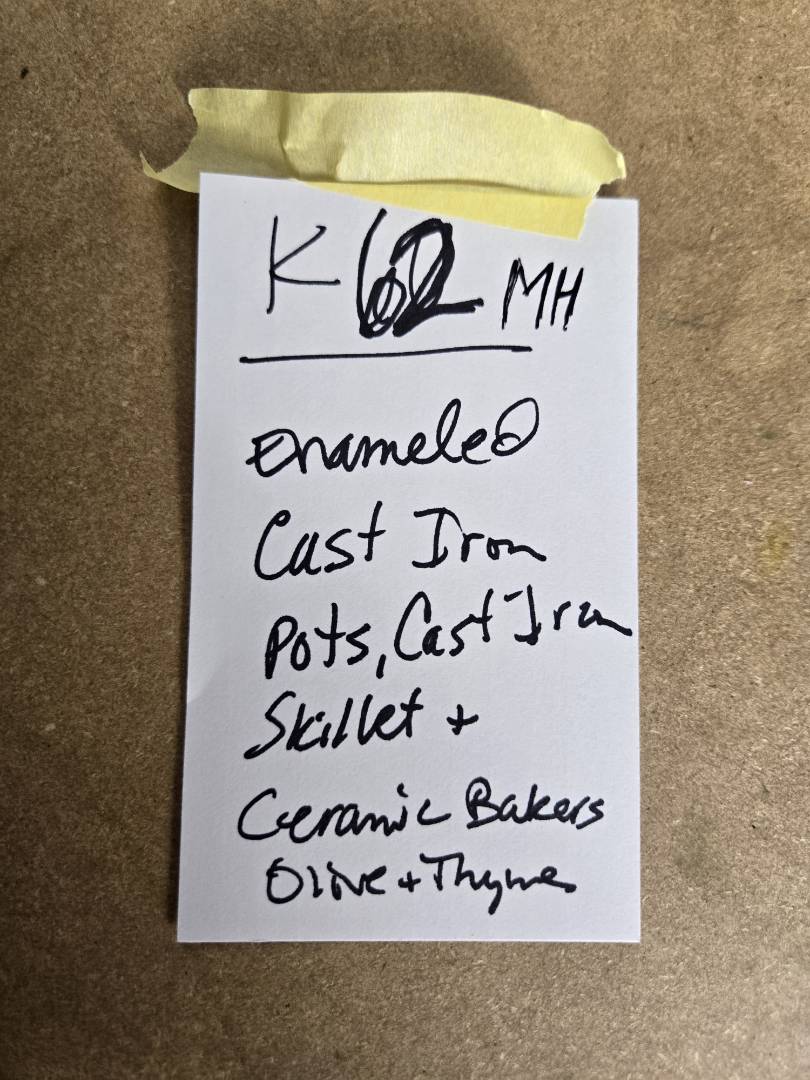 K 62 MH
Enameled
Cast Iron
Pots, Cast Iron
Skillet +
Ceramic Bakers
Olive + Thyme